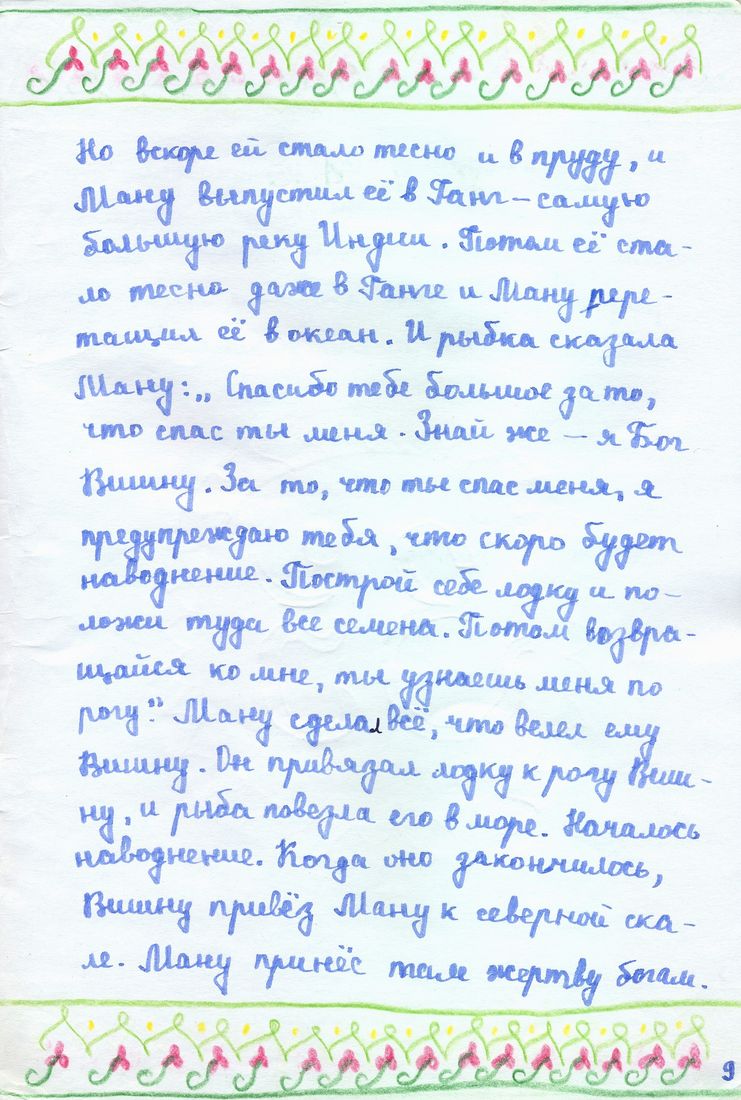 Но вскоре ей стало тесно и в пруду, и
Ману выпустил её в Ганг – самую
большую реку Индии. Потом её ста-
ло тесно даже в Ганге и Ману пере-
тащил её в океан. И рыбка сказала
Ману: „Спасибо тебе большое за то,
что спас ты меня. Знай же – я Бог
Вишну. За то, что ты спас меня, я
предупреждаю тебя, что скоро будет
наводнение. Построй себе лодку и по-
ложи туда все семена. Потом возвра-
щайся ко мне, ты узнаешь меня по
рогу." Ману сделал всё, что велел ему
Вишну. Он привязал лодку к рогу Виш-
ну, и рыба повезла его в море. Началось
наводнение. Когда оно закончилось,
Вишну привёз Ману к северной ска-
ле. Ману принёс там жертву богам.
9